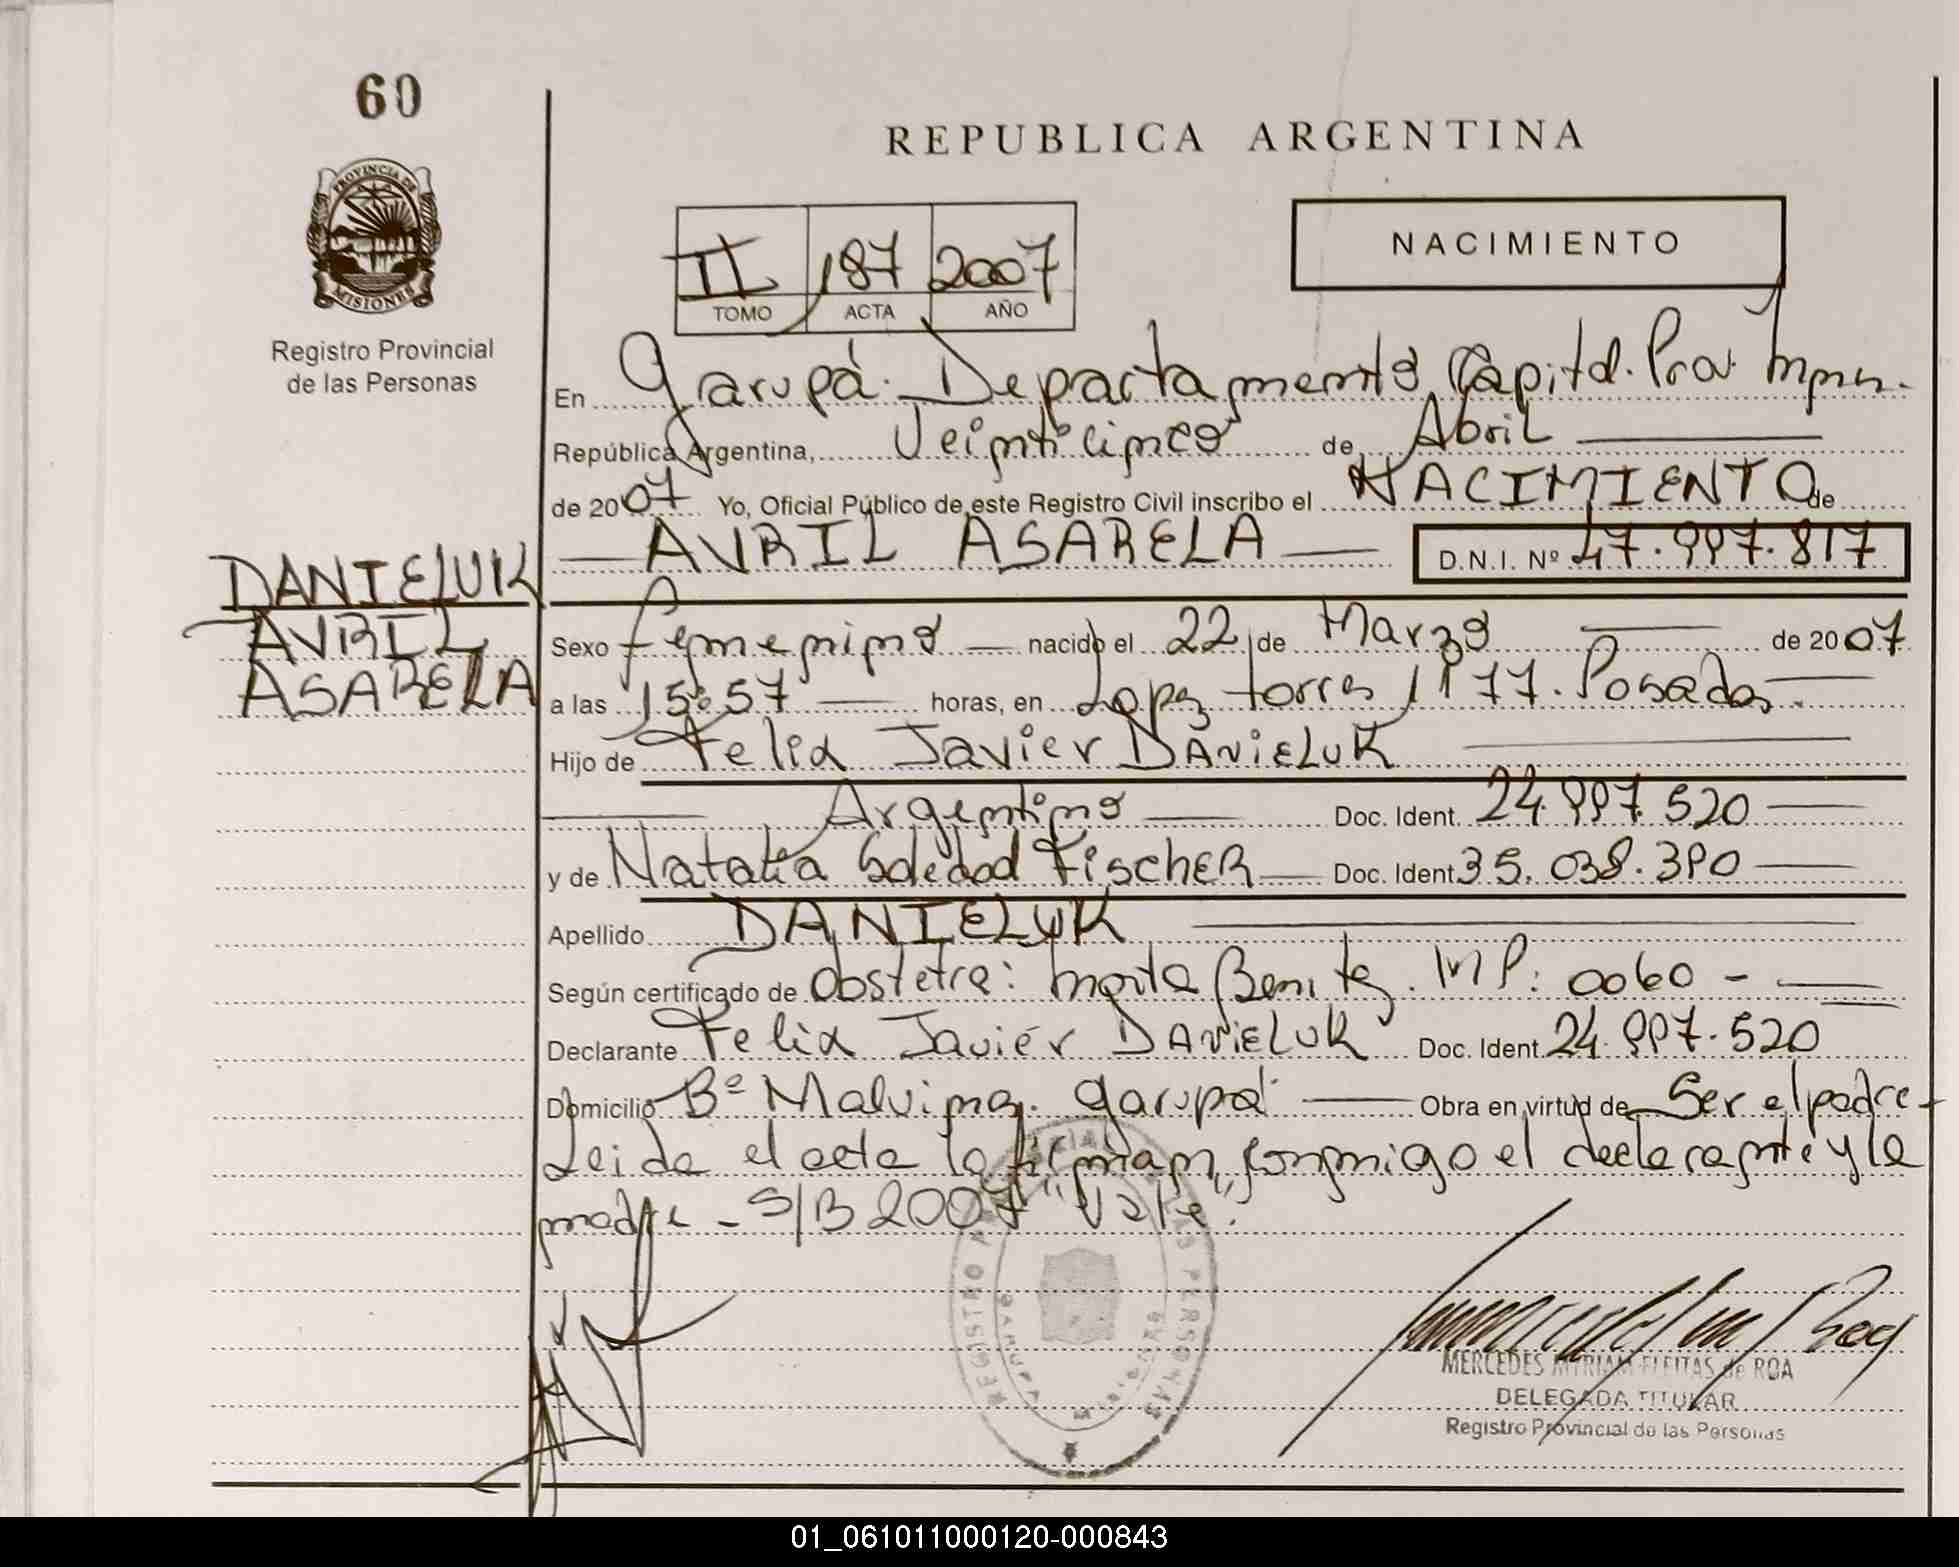 60
REPUBLICA ARGENTINA
PROVINCIA DE
MISIONES
Registro Provincial
de las Personas
II 187 2007
TOMO ACTA AÑO
NACIMIENTO
En Garupá. Departamento Capital. Prov. Mnes.
República Argentina, Veinticinco de Abril
de 2007 Yo, Oficial Público de este Registro Civil inscribo el NACIMIENTO de
AVRIL ASARELA D.N.I. Nº 47.997.817
DANIELUK
AVRIL
ASARELA
Sexo femenino nacido el 22 de Marzo de 2007
a las 15:57 horas, en Lopez torres 1177. Posadas.
Hijo de Felix Javier DANIELUK
Argentino Doc. Ident. 24.997.520
y de Natalia Soledad Fischer Doc. Ident 35.038.390
Apellido DANIELUK
Según certificado de Obstetra: Benitez. MP: 0060 -
Declarante Felix Javier DANIELUK Doc. Ident. 24.997.520
Domicilio Bº Malvinas. Garupá Obra en virtud de Ser el padre
Leida el acta la firman conmigo el declarante y la
madre - S/B 2007 "Vale".
REGISTRO PROVINCIAL DE LAS PERSONAS
GARUPA MISIONES
MERCEDES MYRIAM FLEITAS de ROA
DELEGADA TITULAR
Registro Provincial de las Personas
01_061011000120-000843